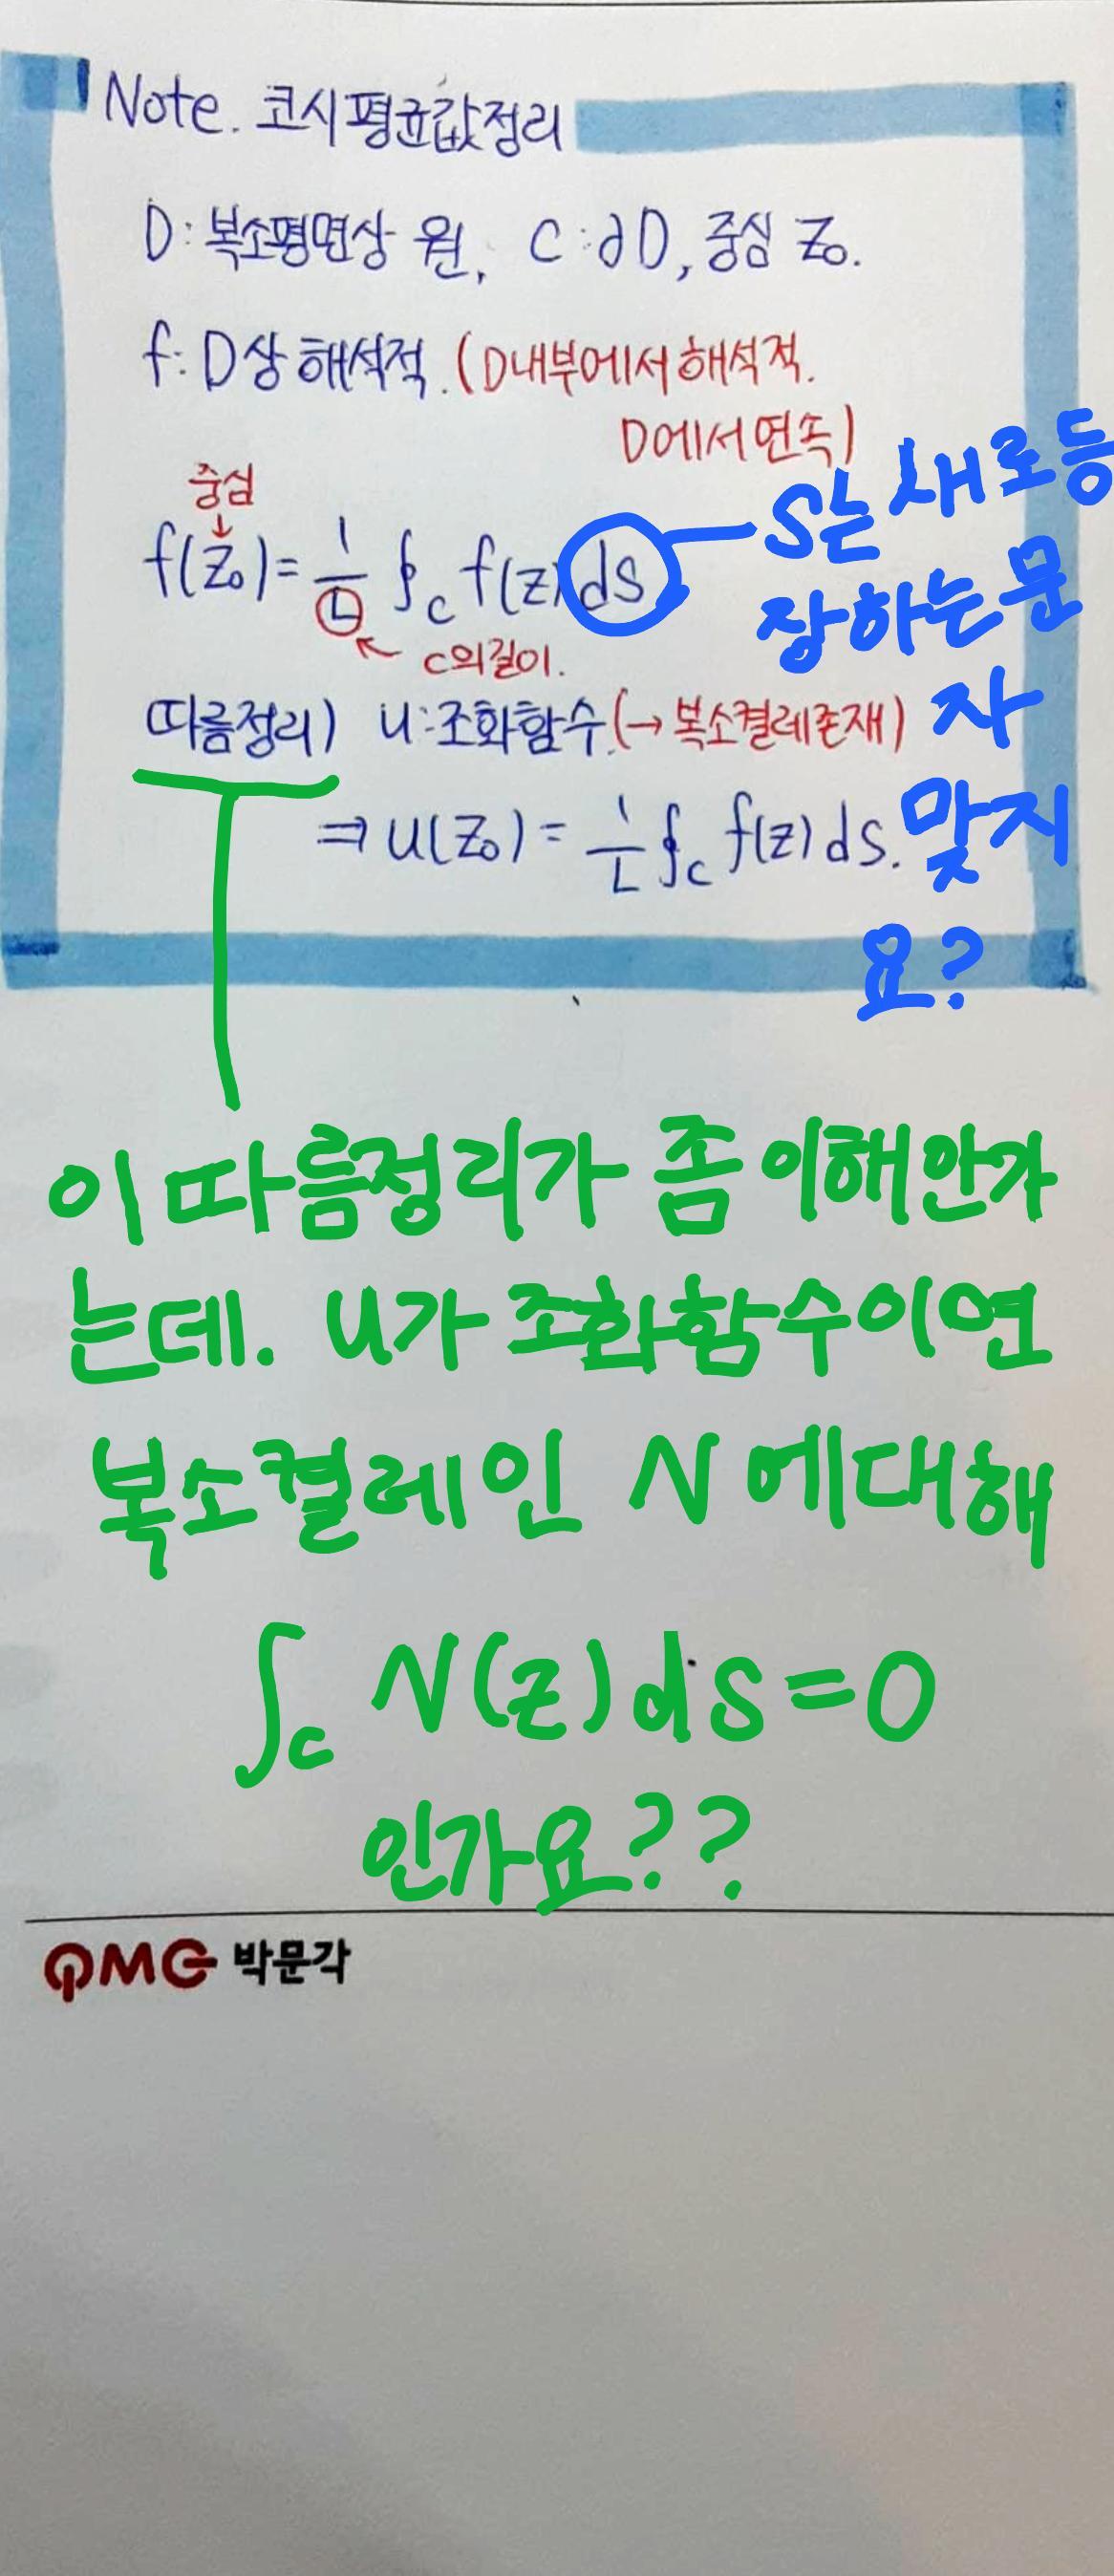 Note. 코시평균값정리
D: 복소평면상 원, C: ∂D, 중심 z₀.
f: D상 해석적. (D내부에서 해석적.
D에서 연속)
중심
↓
f(z₀)= 1/L ∮c f(z)ds
← C의길이.
S는 새로등
장하는 문
자
맞지
요?
따름정리) u:조화함수.(→복소켤레존재)
⇒ u(z₀) = 1/L ∮c f(z)ds.
이 따름정리가 좀 이해안가
는데. u가 조화함수이면
복소켤레인 v에대해
∫c v(z)ds=0
인가요??
PMG 박문각